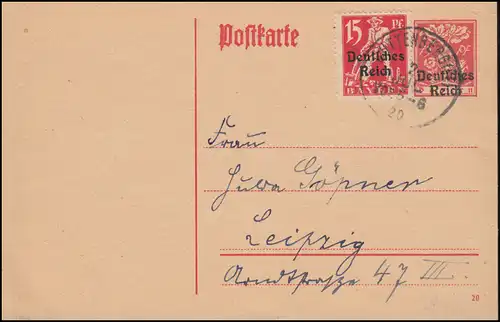 Postkarte
15 Pf
Deutsches
Reich
Deutsches
Reich
20
Frau
Göpner
Leipzig
Arndtstraße 47 III.
20